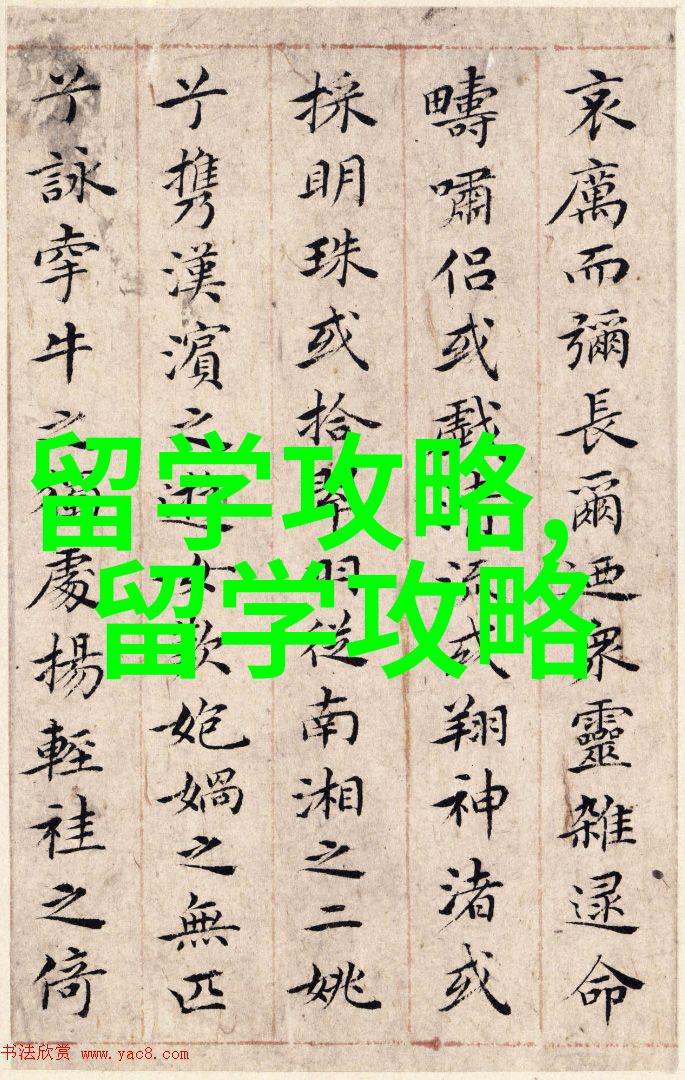 哀厲而彌長爾迺衆靈雜遝命
疇嘯侶或戲清流或翔神渚或
採明珠或拾翠羽從南湘之二姚
兮攜漢濱之遊女歎媧之無匹
兮詠牽牛之獨處揚輕袿之倚
留学攻略,
留学攻略
书法欣赏 www.yac8.com